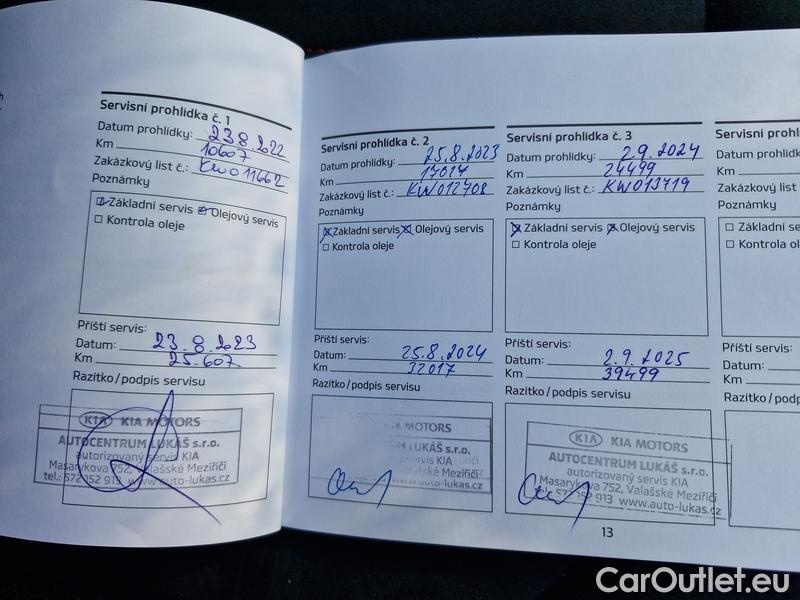 Servisní prohlídka č. 1
Datum prohlídky: 23.8.2022
Km 10607
Zakázkový list č.: KW011662
Poznámky
Základní servis Olejový servis
Kontrola oleje
Příští servis:
Datum: 23.8.2023
Km 25.607
Razítko/podpis servisu
KIA KIA MOTORS
AUTOCENTRUM LUKÁŠ s.r.o.
autorizovaný servis KIA
Masarykova 752, Valašské Meziříčí
tel.: 572 152 913 www.auto-lukas.cz
Servisní prohlídka č. 2
Datum prohlídky: 25.8.2023
Km 17017
Zakázkový list č.: KW012708
Poznámky
Základní servis Olejový servis
Kontrola oleje
Příští servis:
Datum: 25.8.2024
Km 32017
Razítko/podpis servisu
KIA MOTORS
LUKÁŠ s.r.o.
servis KIA
auto-lukas.cz
Servisní prohlídka č. 3
Datum prohlídky: 2.9.2024
Km 24499
Zakázkový list č.: KW013719
Poznámky
Základní servis Olejový servis
Kontrola oleje
Příští servis:
Datum: 2.9.2025
Km 39499
Razítko/podpis servisu
KIA KIA MOTORS
AUTOCENTRUM LUKÁŠ s.r.o.
autorizovaný servis KIA
Masarykova 752, Valašské Meziříčí
tel.: 572 152 913 www.auto-lukas.cz
Servisní prohl
Datum prohlídk
Km
Zakázkový list
Poznámky
Základní se
Kontrola o
Příští servis:
Datum:
Km
Razítko/po
13
CarOutlet.eu